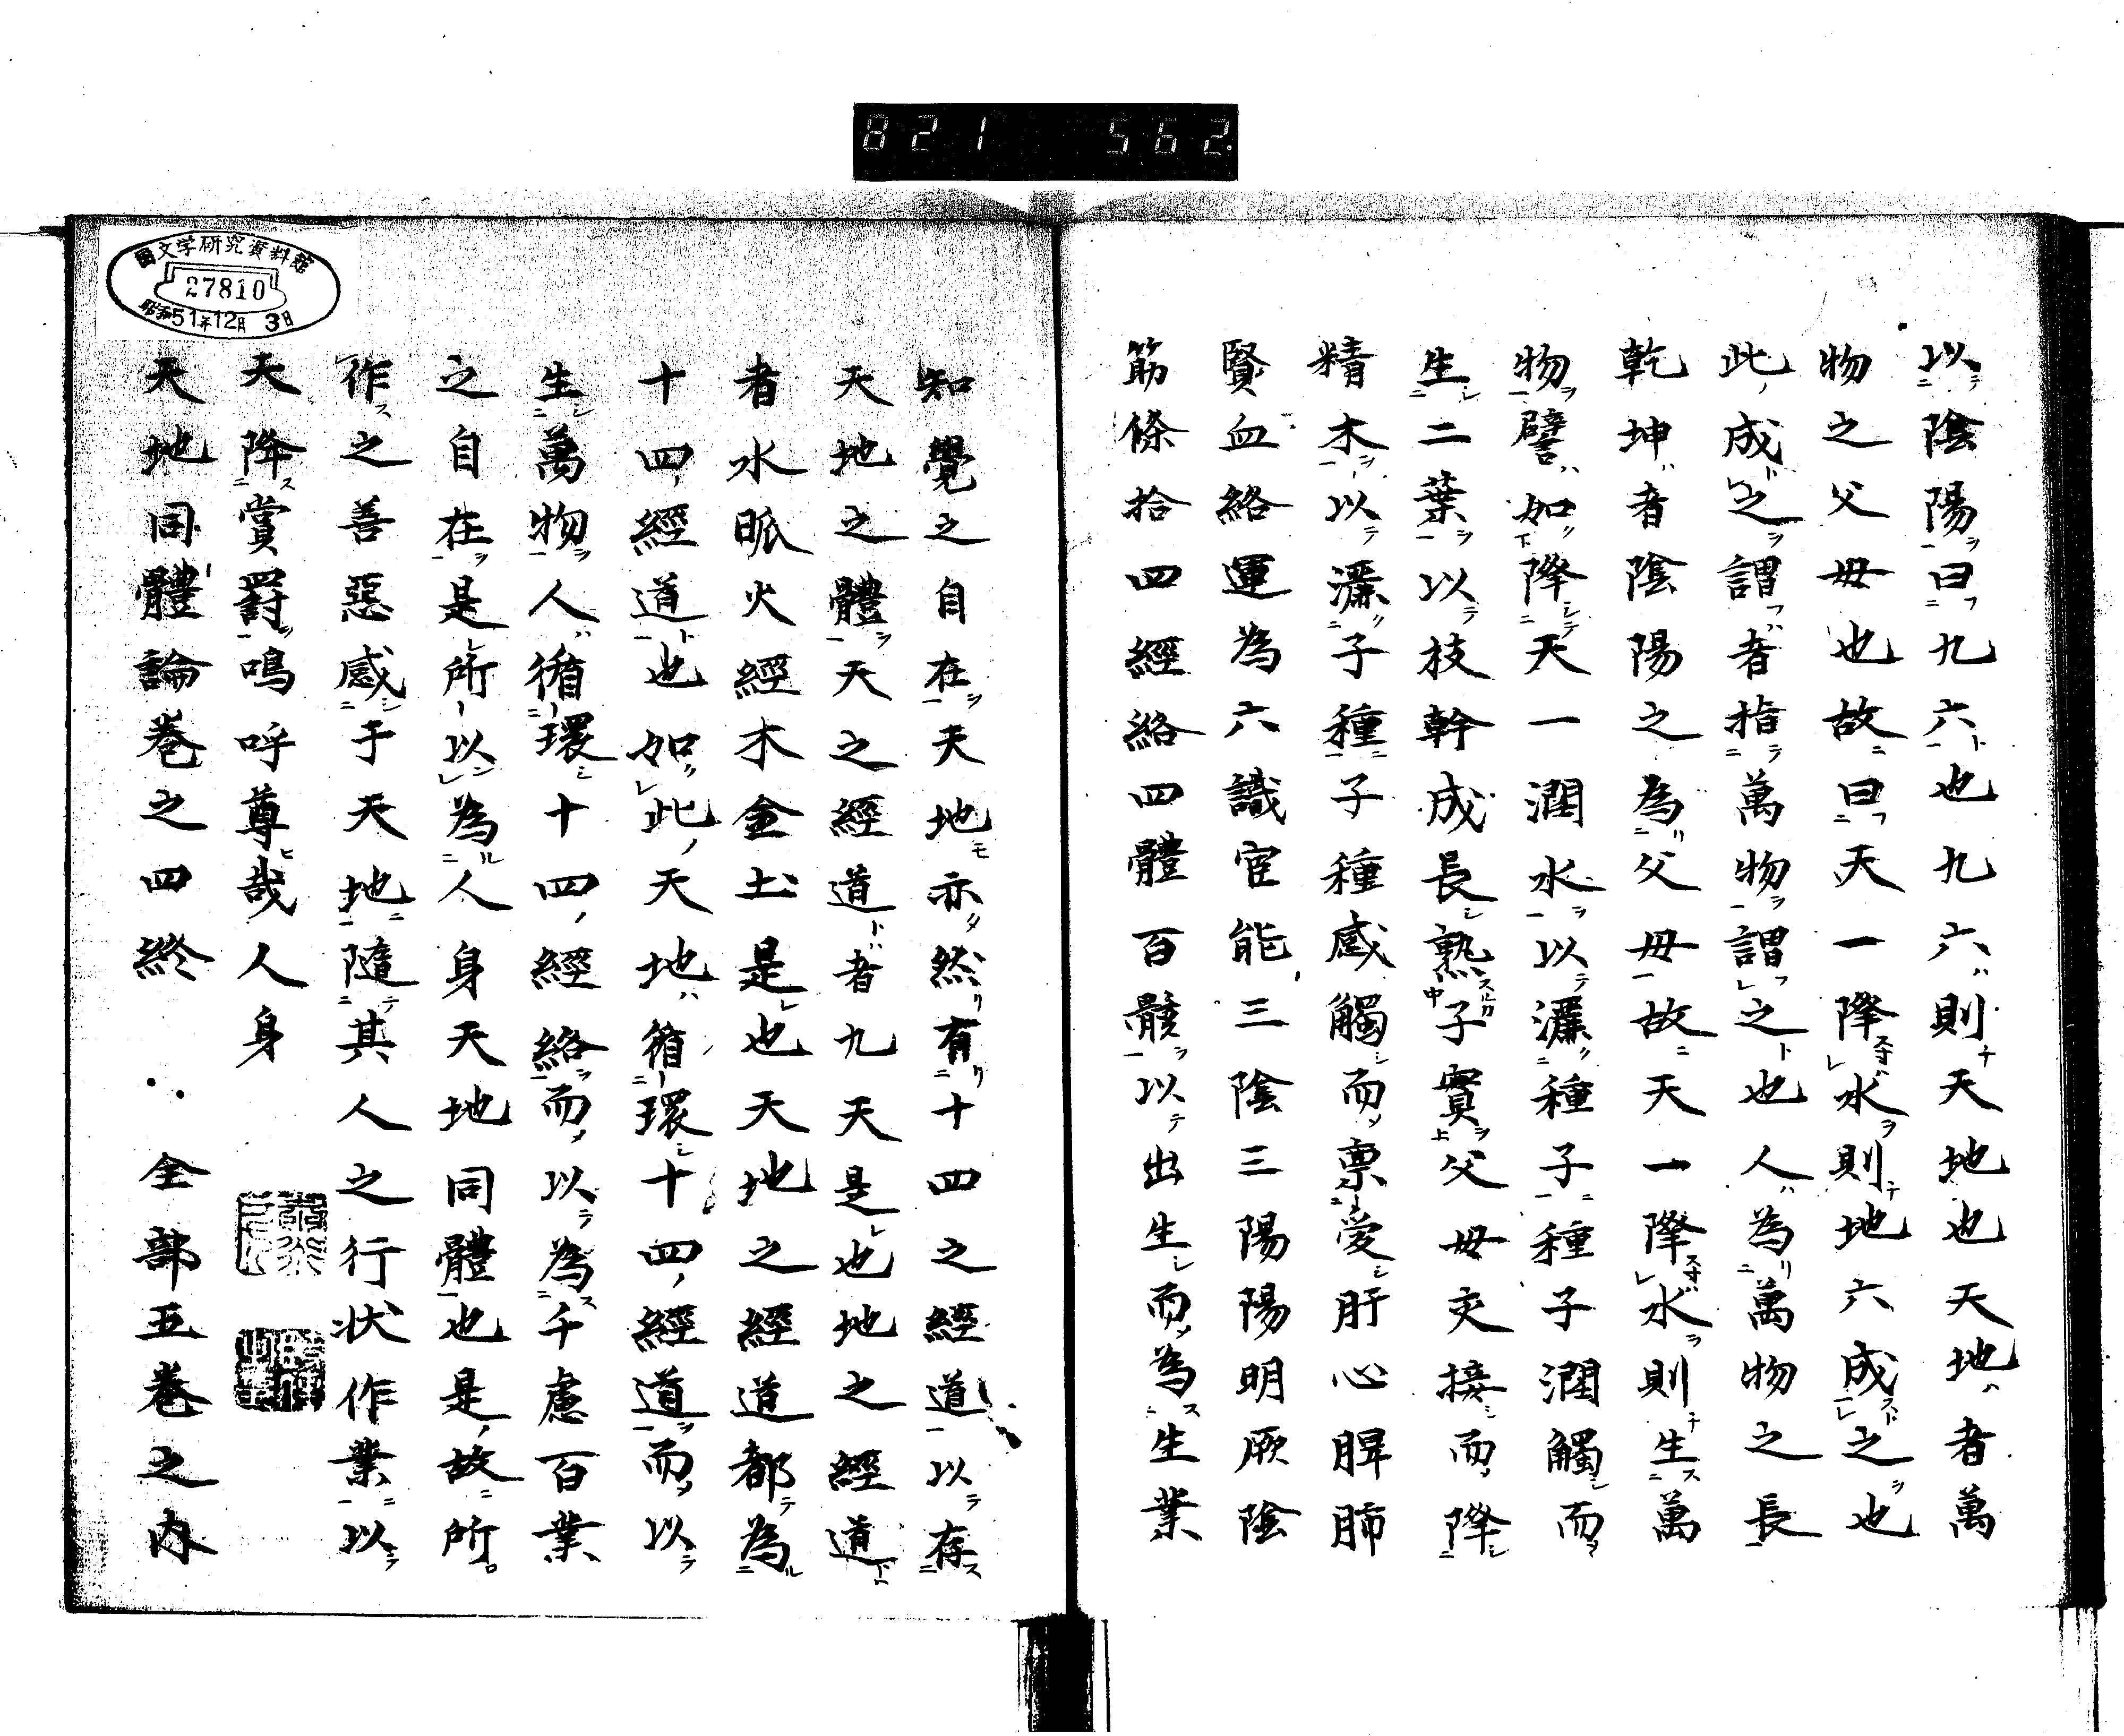 821 562
以陰陽曰九六也九六則天地也天地者萬
物之父母也故曰天一降水則地六成之也
此成之謂者指萬物謂之也人為萬物之長
乾坤者陰陽之為父母故天一降水則生萬
物譬如降天一潤水以灑種子種子潤觸而
生二葉以枝幹成長熟子實父母交接而降
精木以灑子種子種感觸而禀受肝心脾肺
賢血絡運為六識官能三陰三陽陽明厥陰
筋條拾四經絡四體百骸以出生而為生業
知覺之自在天地亦然有十四之經道以存
天地之體天之經道者九天是也地之經道
者水脈火經木金土是也天地之經道都為
十四經道也如此天地循環十四經道而以
生萬物人循環十四經絡而以為千慮百業
之自在是所以為人身天地同體也是故所
作之善惡感于天地隨其人之行状作業以
天降賞罰嗚呼尊哉人身
天地同體論巻之四終 全部五巻之内
國文学研究資料館
27810
昭和51年12月3日